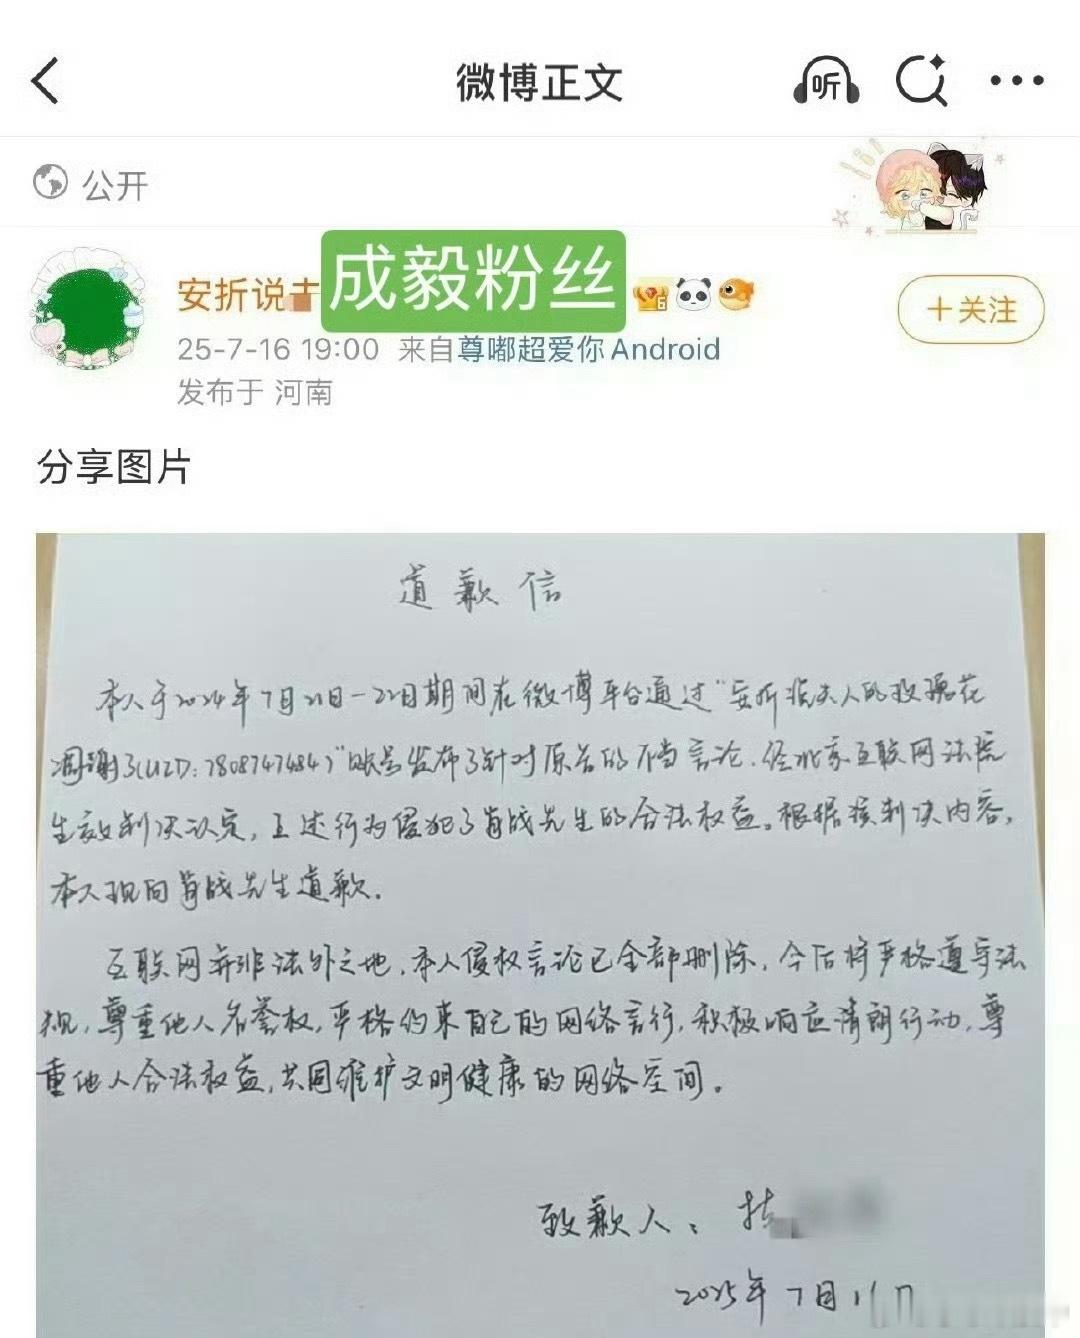 微博正文
听
公开
安折说
成毅粉丝
6
+关注
25-7-16 19:00 来自尊嘟超爱你Android
发布于 河南
分享图片
道歉信
本人于2024年7月21日-22日期间在微博平台通过"安折说夫人的玫瑰花
凋谢了(UID:7808747484)"账号发布了针对原告的不当言论,经北京互联网法院
生效判决认定,上述行为侵犯了肖战先生的合法权益。根据该判决内容,
本人现向肖战先生道歉。
互联网并非法外之地,本人侵权言论已全部删除,今后将严格遵守法
规,尊重他人名誉权,严格约束自己的网络言行,积极响应清朗行动,尊
重他人合法权益,共同维护文明健康的网络空间。
致歉人:
2025年7月